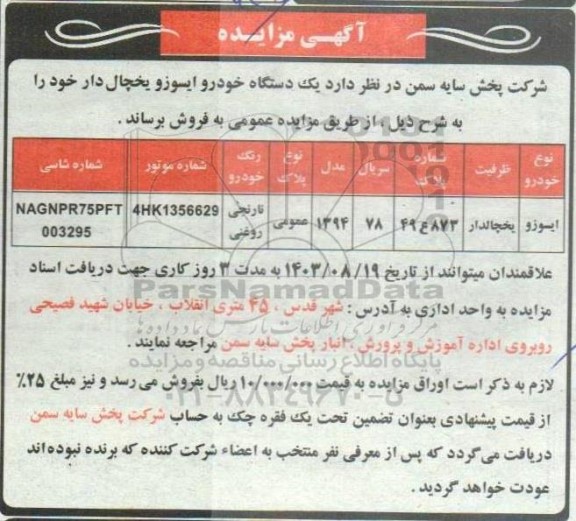 آگهی مزایده
شرکت پخش سایه سمن در نظر دارد یک دستگاه خودرو ایسوزو یخچال دار خود را
به شرح ذیل ، از طریق مزایده عمومی به فروش برساند .
نوع خودرو ظرفیت شماره پلاک سریال مدل نوع پلاک رنگ خودرو شماره موتور شماره شاسی
ایسوزو یخچالدار ۸۷۳ع۴۹ ۷۸ ۱۳۹۴ عمومی نارنجی روغنی 4HK1356629 NAGNPR75PFT
003295
علاقمندان میتوانند از تاریخ ۱۴۰۳/۰۸/۱۹ به مدت ۳ روز کاری جهت دریافت اسناد
مزایده به واحد اداری به آدرس : شهر قدس ، ۴۵ متری انقلاب ، خیابان شهید فصیحی
روبروی اداره آموزش و پرورش ، انبار پخش سایه سمن مراجعه نمایند .
لازم به ذکر است اوراق مزایده به قیمت ۱۰/۰۰۰/۰۰۰ ریال بفروش می رسد و نیز مبلغ ۲۵٪
از قیمت پیشنهادی بعنوان تضمین تحت یک فقره چک به حساب شرکت پخش سایه سمن
دریافت می‌گردد که پس از معرفی نفر منتخب به اعضاء شرکت کننده که برنده نبوده‌اند
عودت خواهد گردید .
ParsNamadData
مرکز فرآوری اطلاعات پارس نماد داده ها
پایگاه اطلاع رسانی مناقصه و مزایده
۰۲۱-۸۸۳۴۹۶۷۰-۵